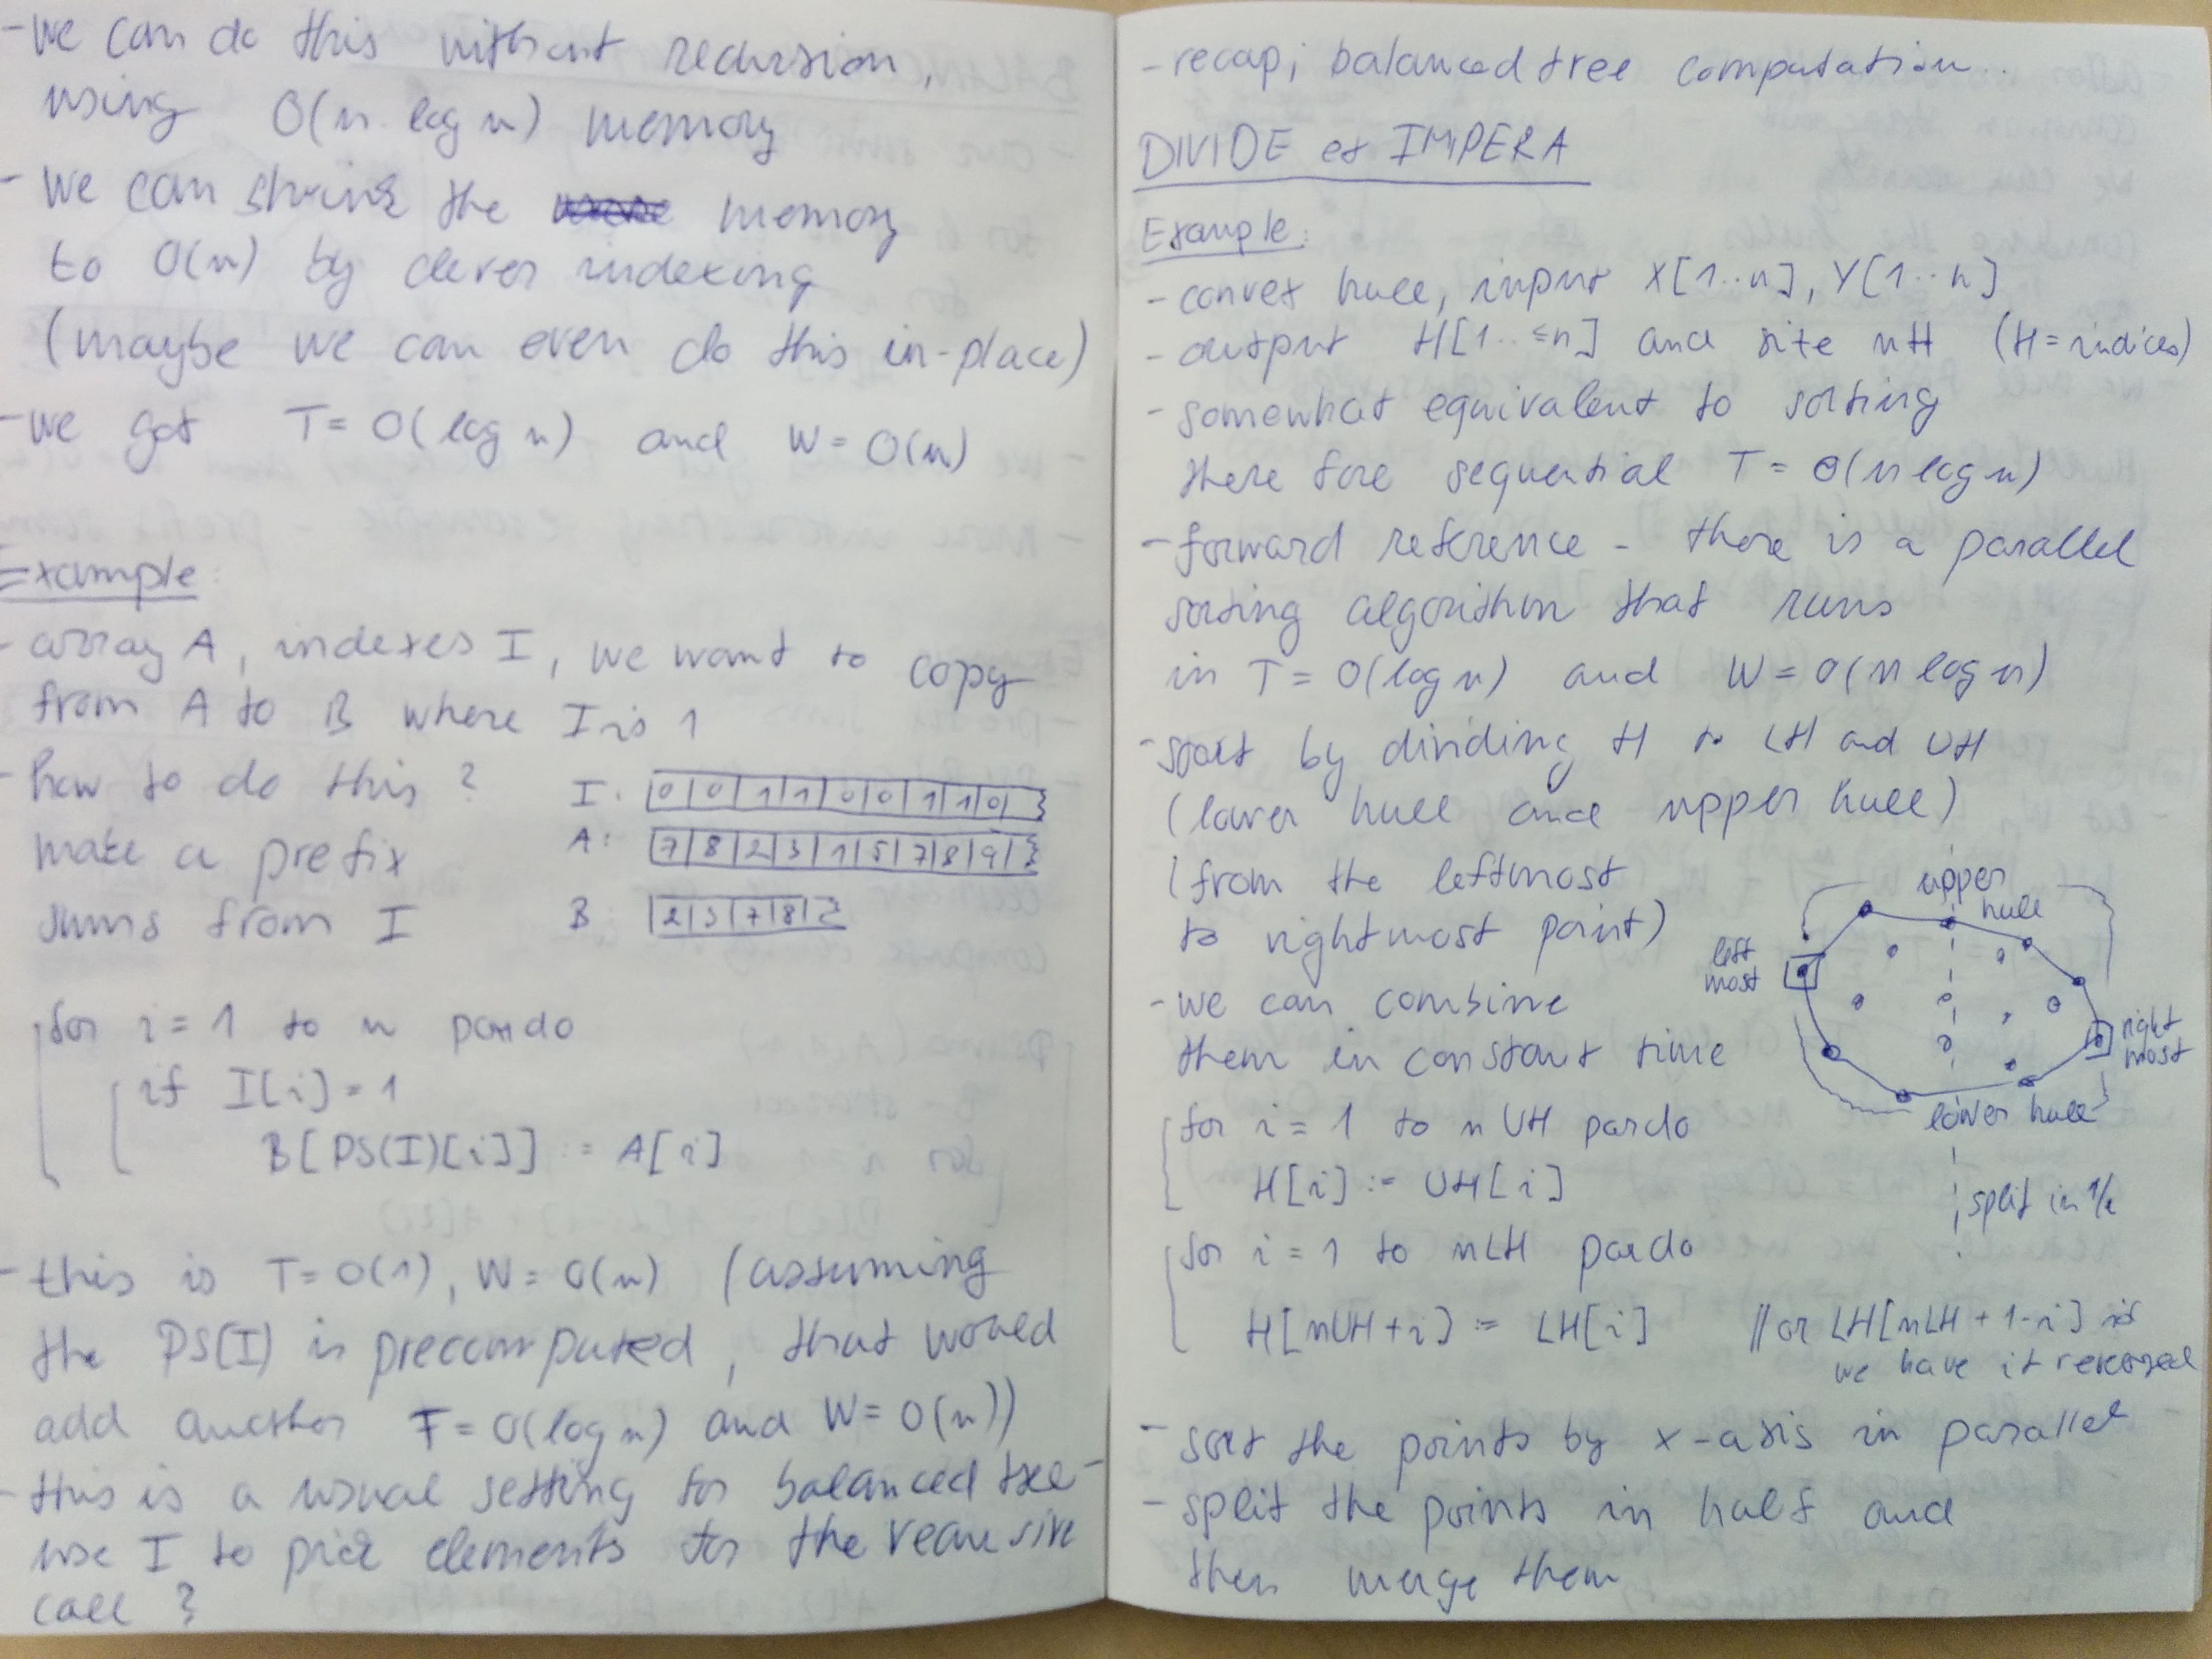 - we can do this without recursion,
using O(n log n) memory
- we can shrink the memory
to O(n) by clever indexing
(maybe we can even do this in-place)
- we get T = O(log n) and W = O(n)
Example:
- array A, indexes I, we want to copy
from A to B where I is 1
- how to do this?
make a prefix
sums from I
I: 0|0|1|1|0|0|1|1|0|
A: 7|8|2|3|1|5|7|8|9|
B: |2|3|7|8|
for i = 1 to n pardo
if I[i] = 1
B[PS(I)[i]] := A[i]
- this is T = O(1), W = O(n) (assuming
the PS(I) is precomputed, that would
add another T = O(log n) and W = O(n))
- this is a usual setting for balanced tree -
use I to pick elements for the recursive
call?
- recap; balanced tree computation..
DIVIDE et IMPERA
Example:
- convex hull, input X[1..n], Y[1..n]
- output H[1..≤n] and size nH (H = indices)
- somewhat equivalent to sorting
there fore sequential T = Θ(n log n)
- forward reference - there is a parallel
sorting algorithm that runs
in T = O(log n) and W = O(n log n)
- start by dividing H to LH and UH
(lower hull and upper hull)
(from the leftmost
to rightmost point)
- we can combine
them in constant time
upper
hull
left
most
right
most
lower hull
split in 1/2
for i = 1 to nUH pardo
H[i] := UH[i]
for i = 1 to nLH pardo
H[nUH+i] := LH[i] // or LH[nLH + 1 - i] if
we have it reversed
- sort the points by x-axis in parallel
- split the points in half and
then merge them